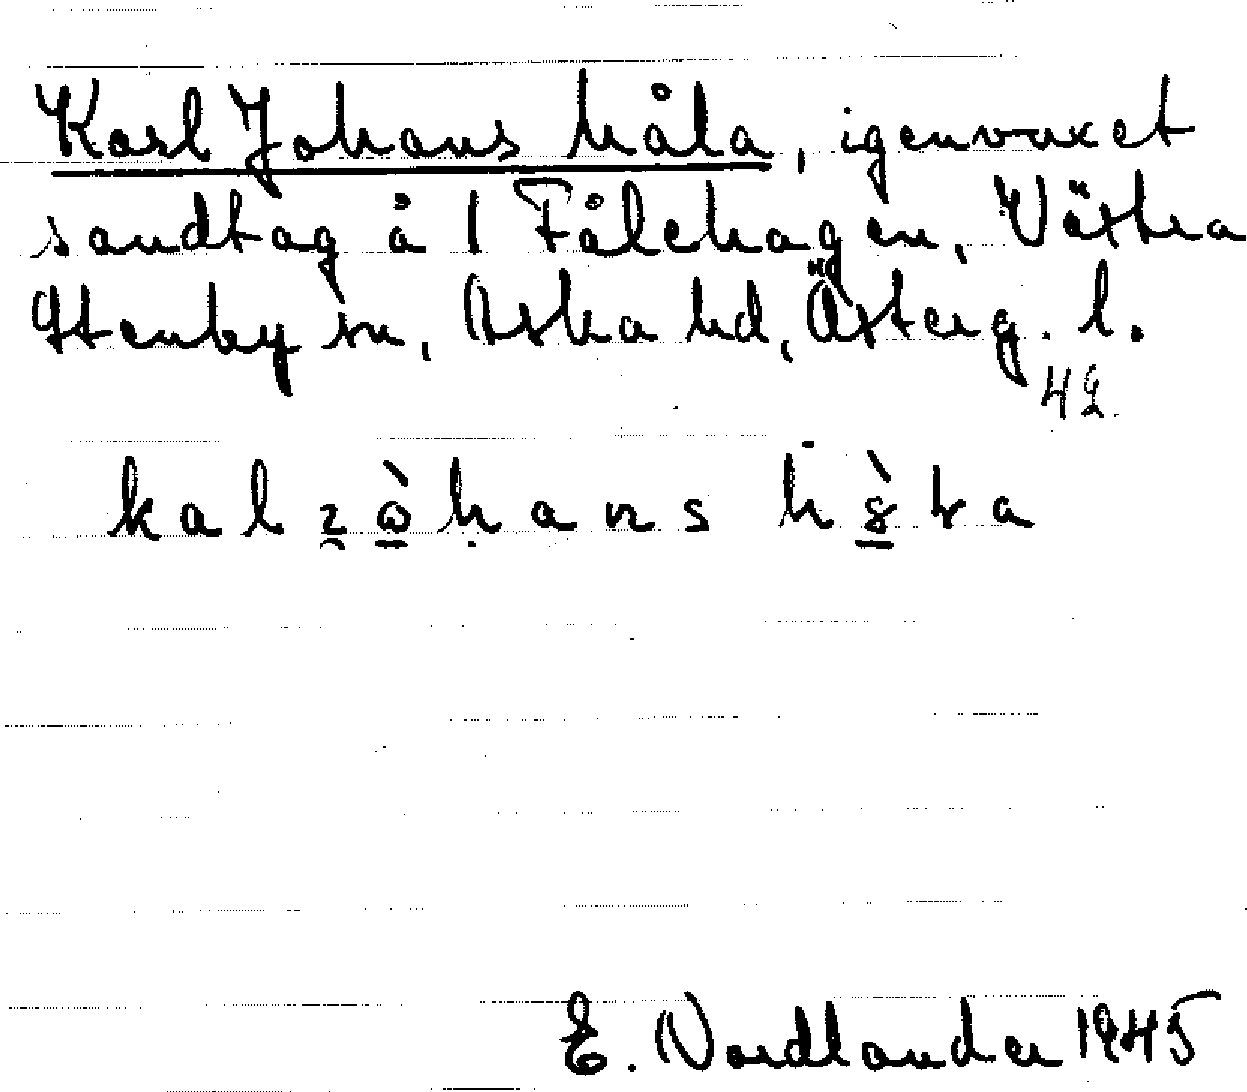 Karl Johans håla, igenvuxet
sandtag å 1 Fålehagen, Västra
Stenby sn, Aska hd, Österg. l.
42
E. Nordlander 1945